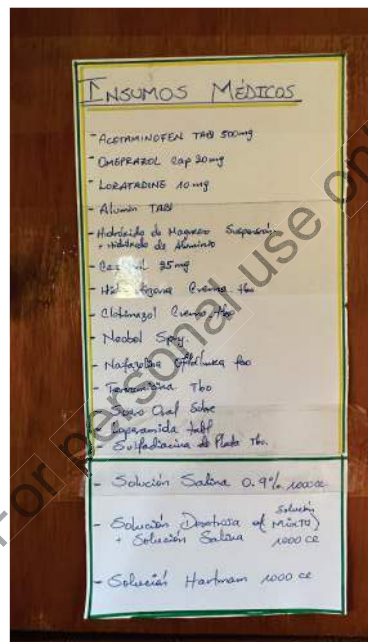 INSUMOS MÉDICOS
- ACETAMINOFEN TAB 500mg
- OMEPRAZOL cap 20mg
- LORATADINE 10mg
- Alumin TAB
- Hidróxido de Magnesio Suspensión
+ Hidróxido de Aluminio
- 25mg
- Crema tbo
- Clotimazol Crema tbo
- Neobol Spry.
- Nafazolina Oftálmica fco
- Terramicina Tbo
- Suero Oral Sobre
- Loperamida tabl
- Sulfadiacina de Plata Tbo.
- Solución Salina 0.9% 1000cc
- Solución Dextrosa al (Solución Mixta)
+ Solución Salina 1000 cc
- Solución Hartmam 1000 cc
For personal use on